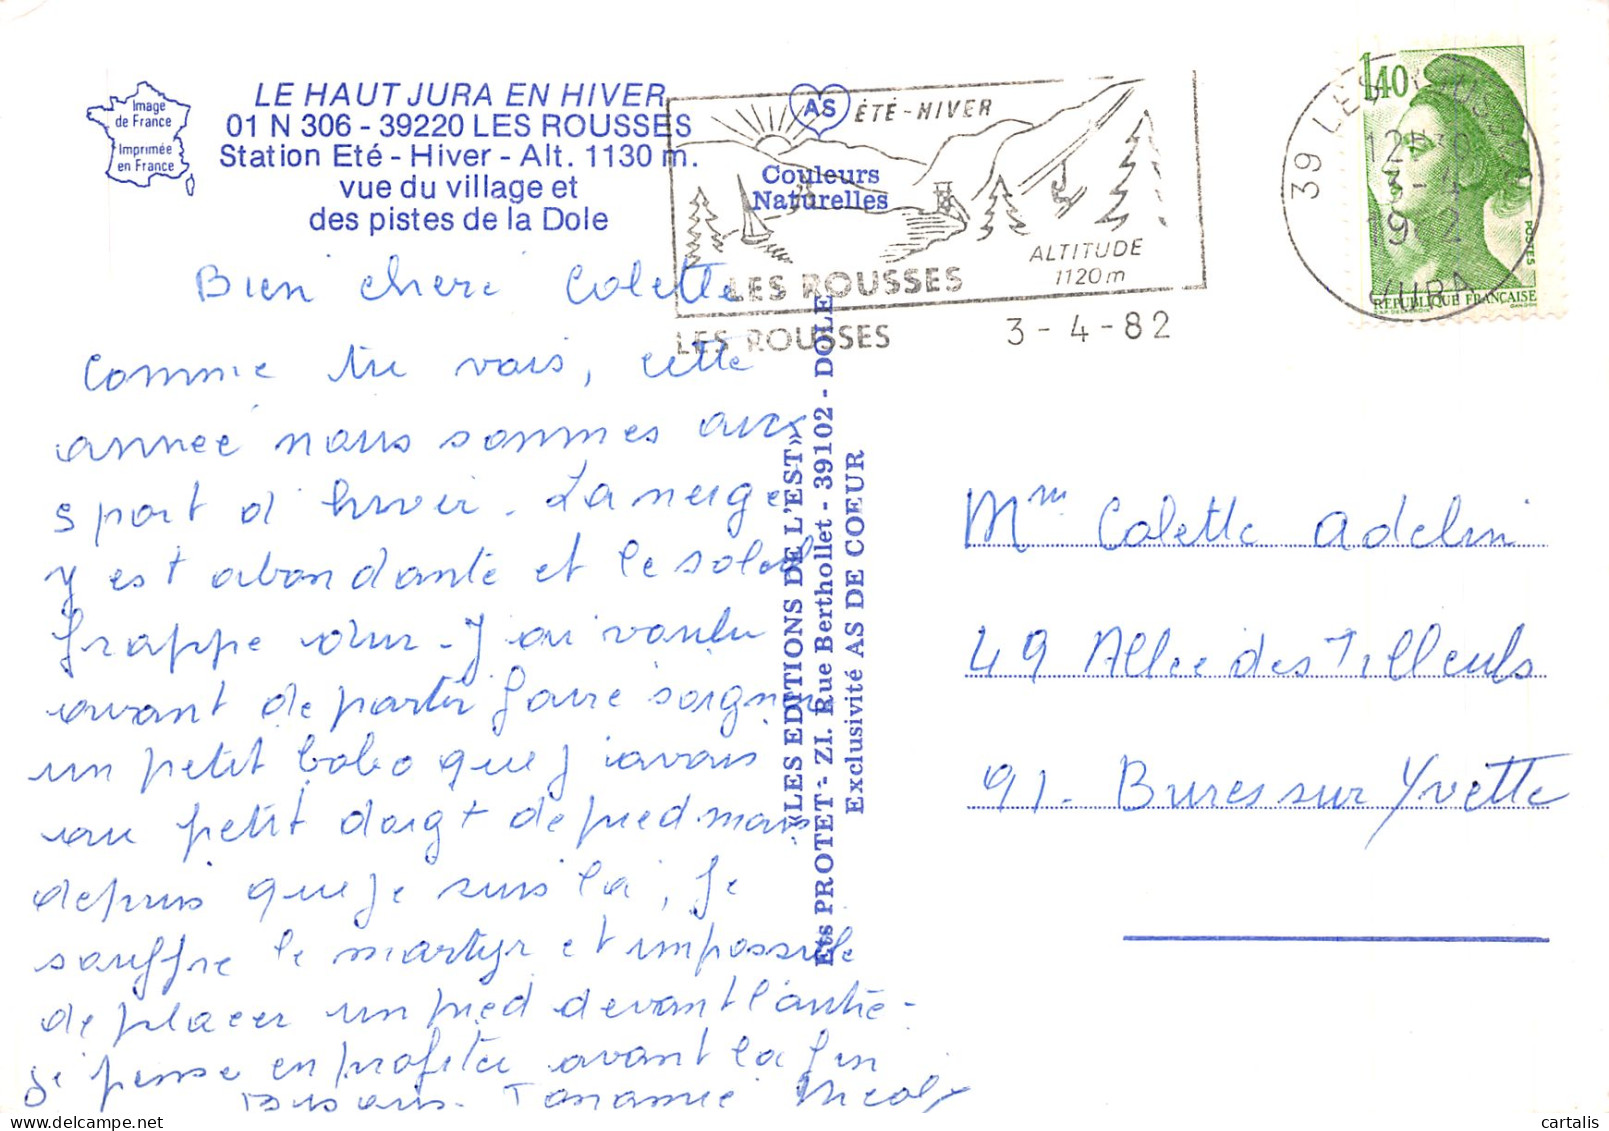 Image
de France
Imprimée
en France
LE HAUT JURA EN HIVER
01 N 306 - 39220 LES ROUSSES
Station Eté - Hiver - Alt. 1130 m.
vue du village et
des pistes de la Dole
AS
Couleurs
Naturelles
ÉTÉ-HIVER
ALTITUDE
1120m
LES ROUSSES
LES ROUSSES
3-4-82
39 LES ROUSSES
12H30
3-4
19 2
JURA
1,40
POSTES
REPUBLIQUE FRANÇAISE
Bien cheri Colette
Comme tu vois, cette
année nous sommes aux
sport d'hiver. La neige
y est abondante et le soleil
frappe dur. J'ai voulu
avant de partir faire soigner
un petit bobo que j'avais
au petit doigt de pied mais
depuis que je suis là, je
souffre le martyr et impossible
de placer un pied devant l'autre.
je pense en profiter avant la fin
Bisous.
«LES EDITIONS DE L'EST»
Ets PROTET - ZI. Rue Berthollet - 39102 - DOLE
Exclusivité AS DE CŒUR
Mme Colette Adelini
49 Allee des Tilleuls
91. Bures sur Yvette
cartalis